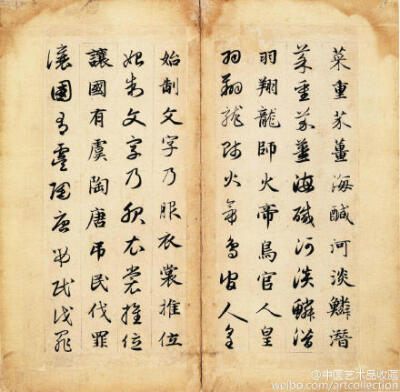 菜重芥薑海鹹河淡鱗潛
菜重芥薑海鹹河淡鱗潛
羽翔龍師火帝鳥官人皇
羽翔龍師火帝鳥官人皇
始制文字乃服衣裳推位
始制文字乃服衣裳推位
讓國有虞陶唐吊民伐罪
讓國有虞陶唐吊民伐罪
@中国艺术品收藏
weibo.com/artcollection